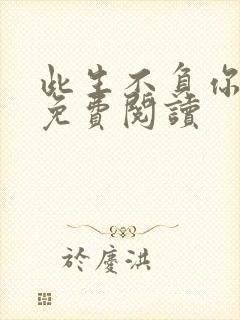 此生不負你
免費閱讀
於慶洪